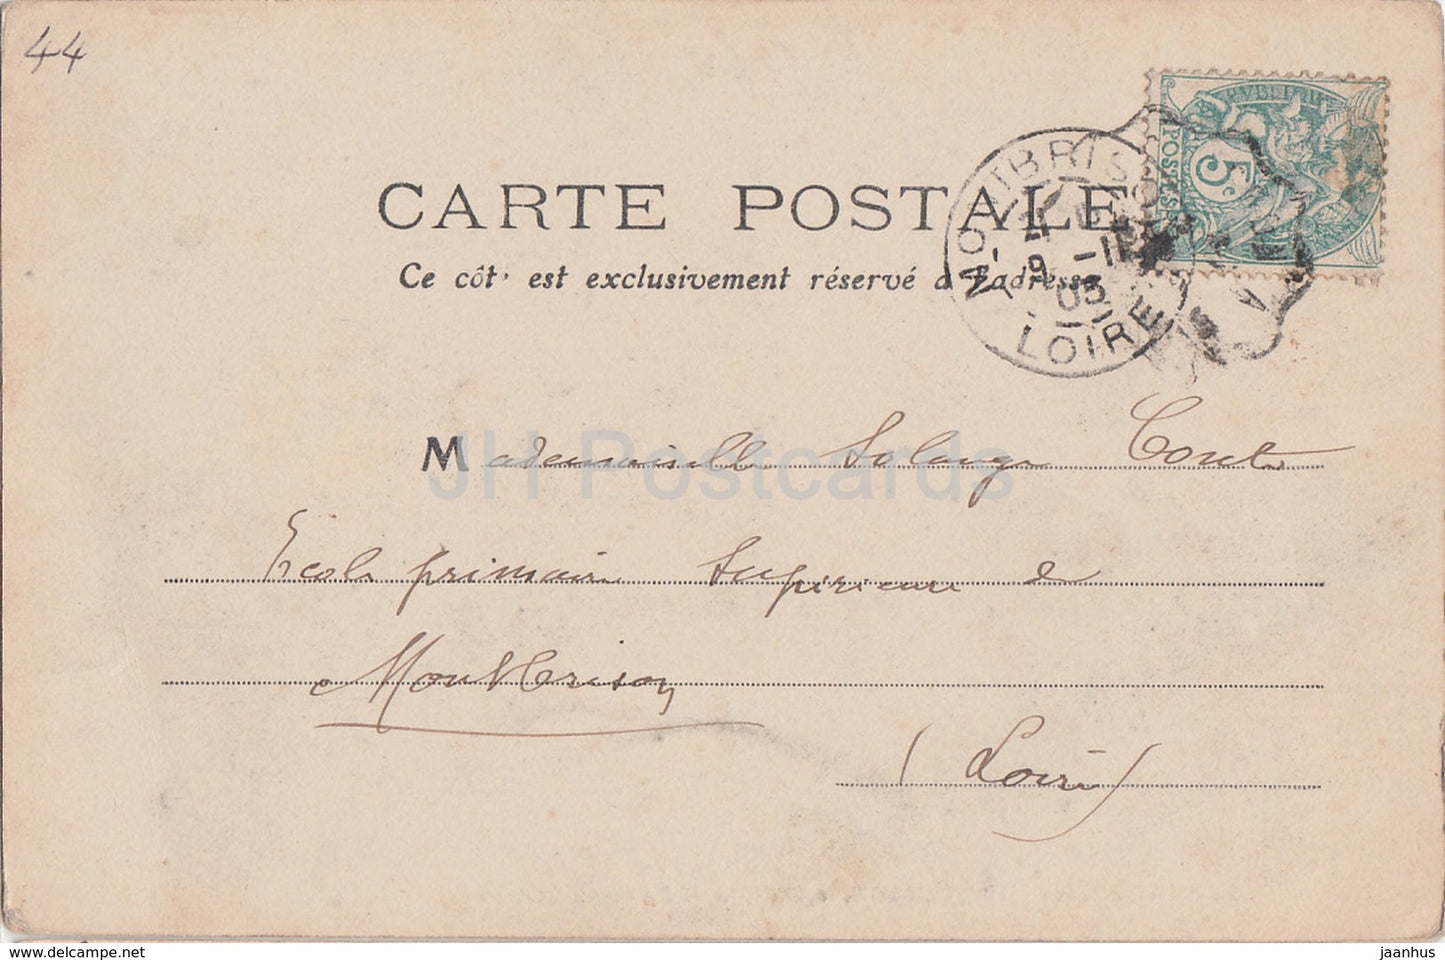 44
CARTE POSTALE
Ce côt' est exclusivement réservé à l'adresse
MONTBRISON
9 -11
03
LOIRE
POSTES
5c
Mademoiselle Solange
Ecole primaire Supérieure de
Montbrison
(Loire)
JH Postcards
www.delcampe.net
jaanhus